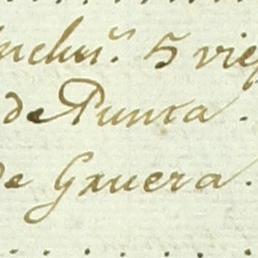 inclus.ˢ 5 viej
de Punta.
de Gruera.